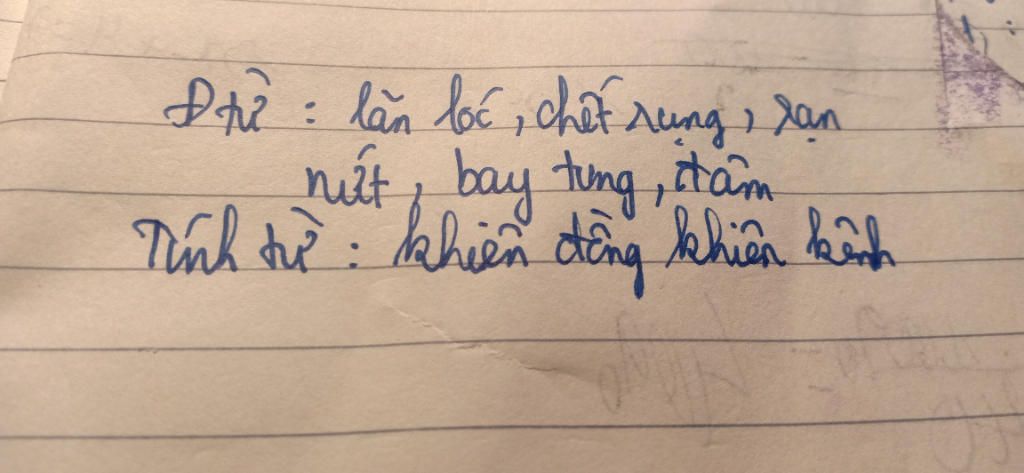 Đ từ : lăn lốc, chết rụng, rạn
nứt, bay tung, đâm
Tính từ : khiên đồng khiên kênh